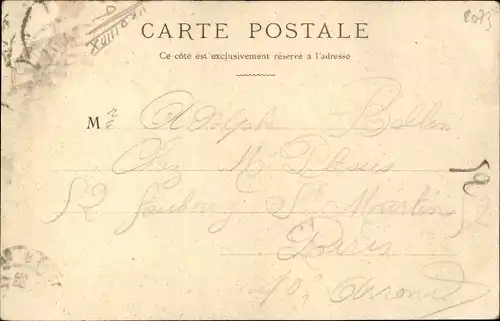 2073
CARTE POSTALE
Ce côté est exclusivement réservé à l'adresse
M re Adolph Bellin
Chez M
52 faubourg St Martin 52
Paris
10e Arrond